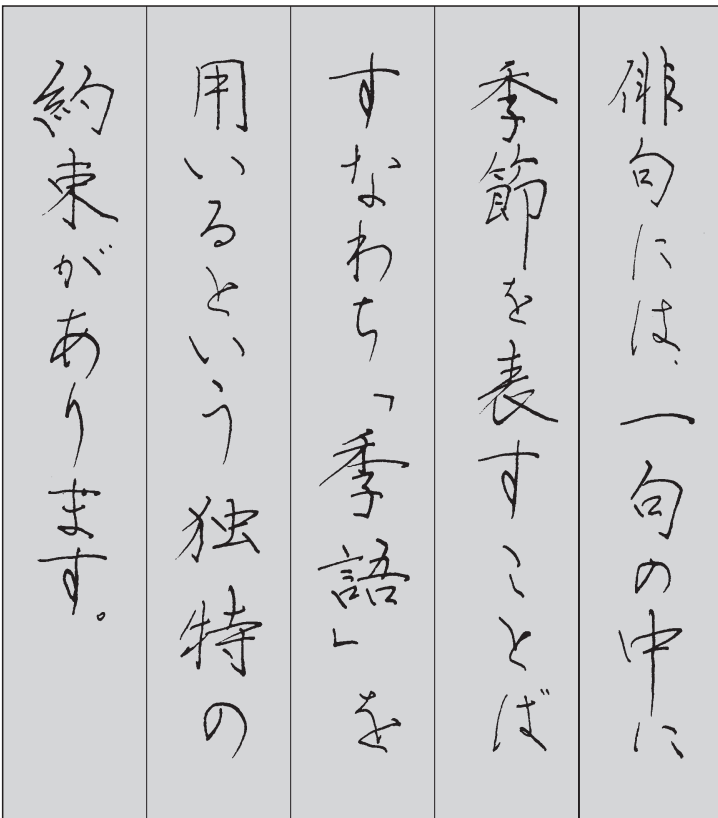 俳句には、一句の中に
季節を表すことば
すなわち「季語」を
用いるという独特の
約束があります。